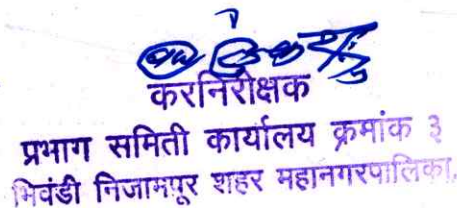 करनिरीक्षक
प्रभाग समिती कार्यालय क्रमांक ३
भिवंडी निजामपूर शहर महानगरपालिका.